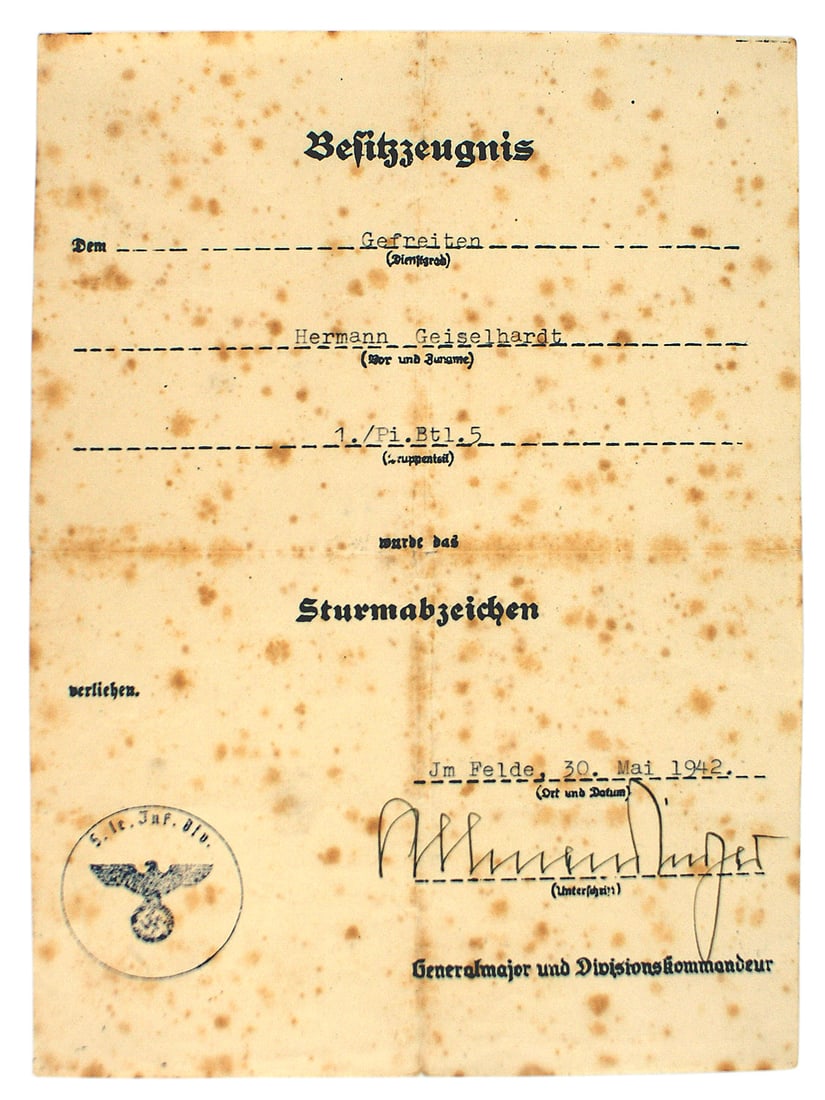 Besitzzeugnis
Dem Gefreiten
(Dienstgrad)
Hermann Geiselhardt
(Vor und Zuname)
1./Pi.Btl.5
(Truppenteil)
wurde das
Sturmabzeichen
verliehen.
Jm Felde, 30. Mai 1942.
(Ort und Datum)
Allmendinger
(Unterschrift)
5. le. Inf. Div.
Generalmajor und Divisionskommandeur